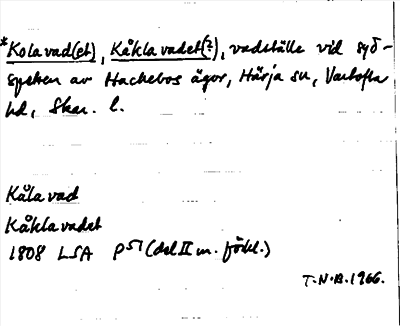 *Kolavad(et), Kåklavadet(?), vadställe vid syd-
spetsen av Hackebos ägor, Härja sn, Vartofta
hd, Skar. l.
Kåla vad
Kåklavadet
1808 LSA P51 (del II m. förkl.)
T.N.B. 1966.